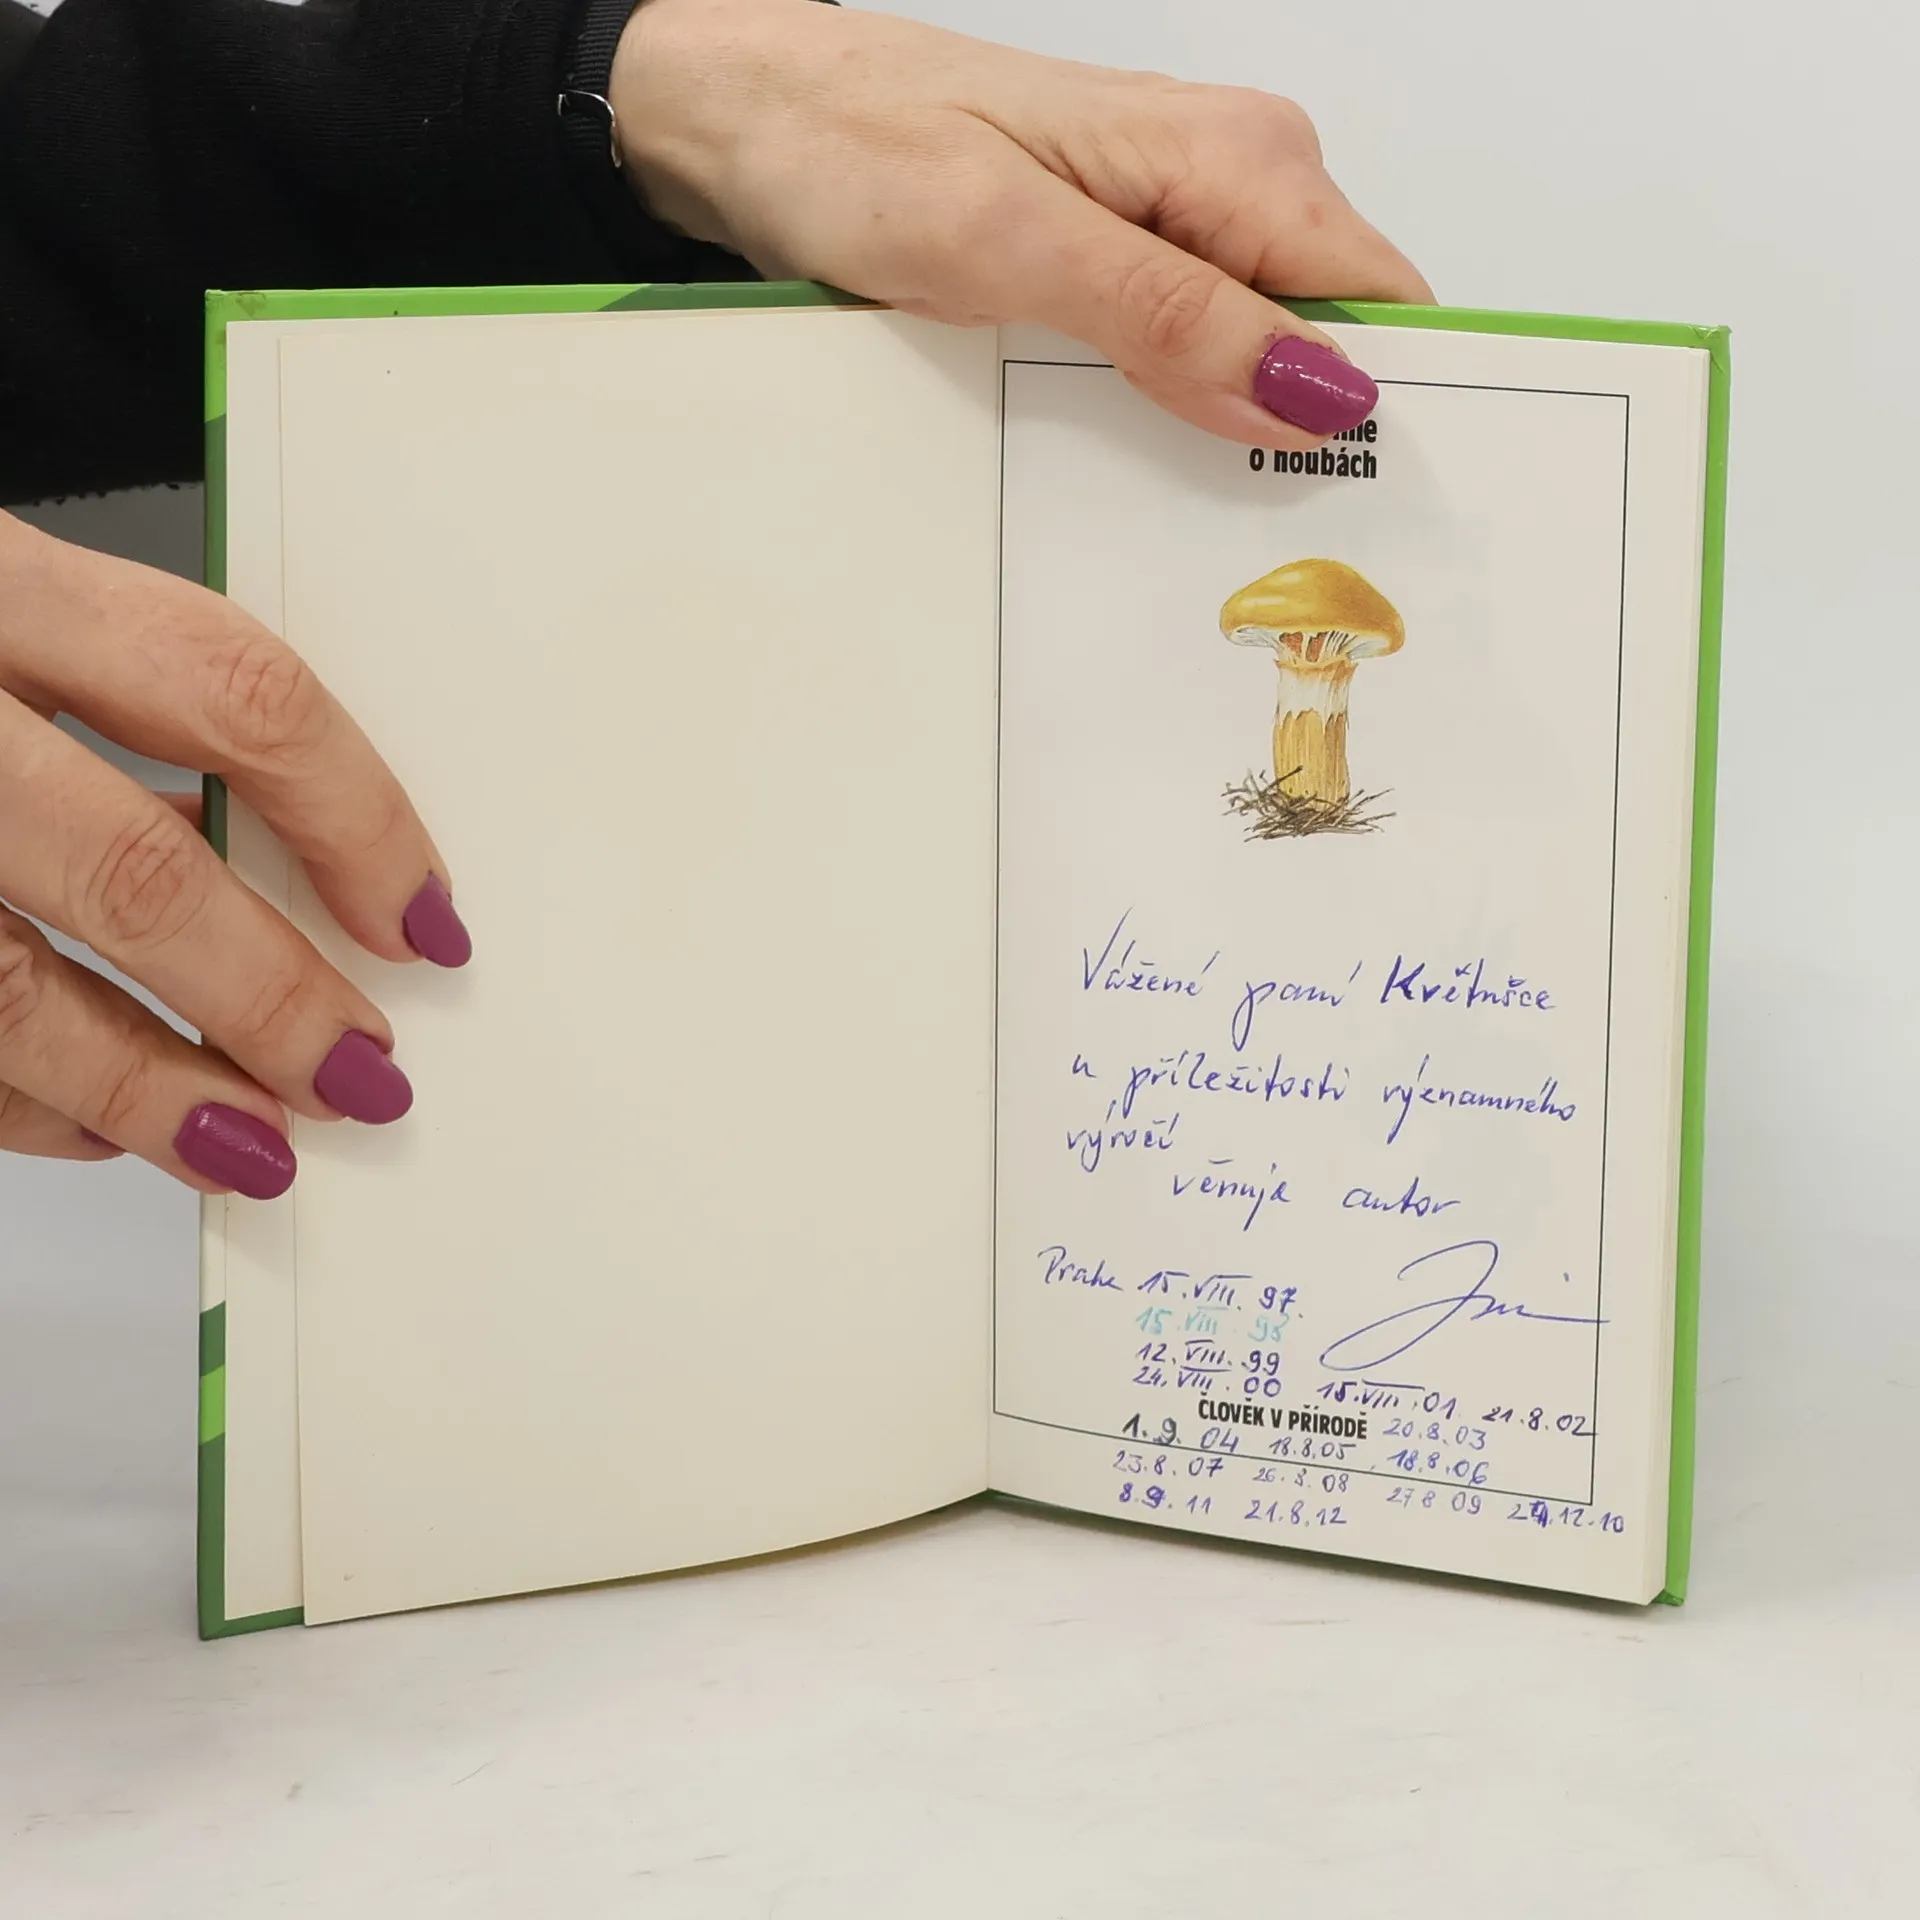 o houbách
Vážené paní Květušce
u příležitosti významného
výročí
věnuje autor
Praha 15. VIII. 97.
15. VIII. 98
12. VIII. 99
24. VIII. 00 15. VIII. 01. 21.8.02
ČLOVĚK V PŘÍRODĚ 20.8.03
1.9.04 18.8.05 18.8.06
23.8.07 26.8.08 27 8 09 12.10
8.9.11 21.8.12